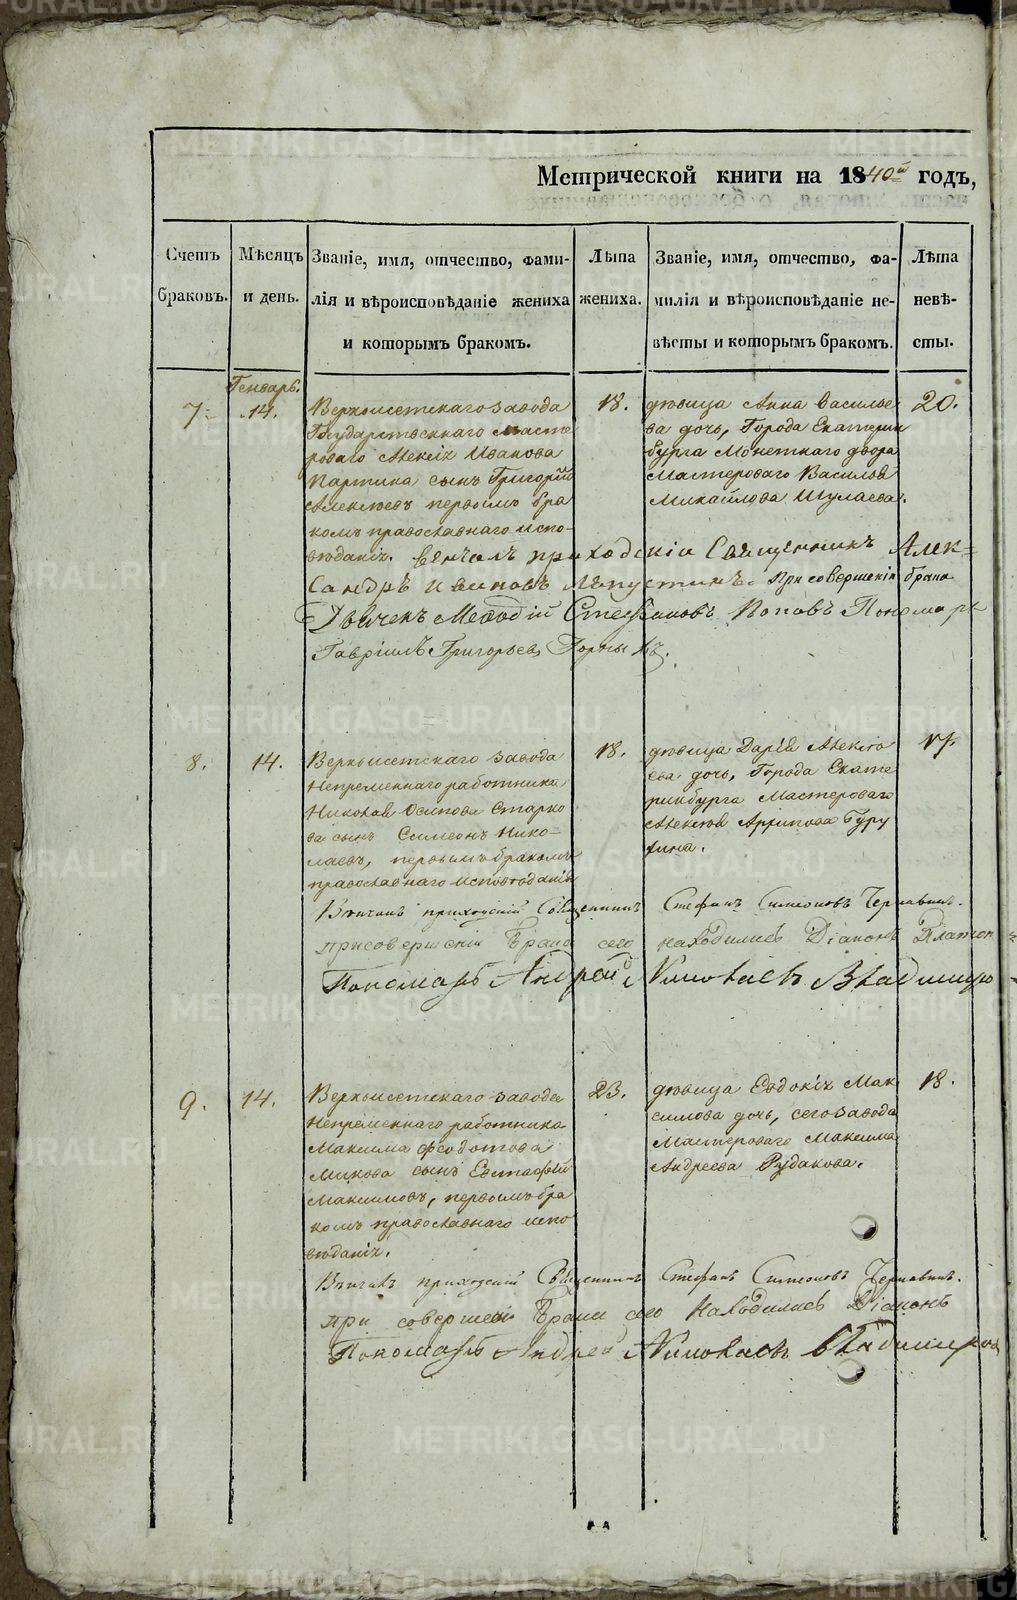 Метрической книги на 1840й годъ,
Счетъ браковъ.
Мѣсяцъ и день.
Званіе, имя, отчество, фами-
лія и вѣроисповѣданіе жениха
и которымъ бракомъ.
Лѣта жениха.
Званіе, имя, отчество, фа-
милія и вѣроисповѣданіе не-
вѣсты и которымъ бракомъ.
Лѣта невѣ-
сты.
7.
Генварь.
14.
Верхисетскаго завода
Государственнаго масте
роваго Алексія Иванова
Партина сынъ Григорій
Алексѣевъ первымъ бра
комъ православнаго испо-
вѣданія.
18.
дѣвица Анна Василье
ва дочь, Города Екатерин
бурга Монетнаго двора
Мастероваго Василья
Михайлова Шулаева.
20.
Вѣнчалъ приходскій Священникъ Алек=
сандръ Ивановъ Лепустинъ. При совершеніи брака
Дьячекъ Меѳодій Стефановъ Поповъ Пономарь
Гавріилъ Григорьевъ
8.
14.
Верхисетскаго завода
Непременнаго работника
Николая Осипова Старко
ва сынъ Симеонъ Нико-
лаевъ, первымъ бракомъ
православнаго исповѣданія
18.
дѣвица Дарія Алексѣ
ева дочь, Города Екате
ринбурга Мастероваго
Алексѣя Архипова Буру
хина.
17.
Вѣнчалъ приходскій Священникъ Стефанъ Симеоновъ Чернавинъ.
при совершеніи Брака сего находились Діаконъ Платон
Пономарь Андрей Николаевъ Владимиро
9.
14.
Верхисетскаго завода
Непременнаго работника
Максима Ѳеодотова
сынъ Евстафій
Максимовъ, первымъ бра
комъ православнаго испо
вѣданія.
23.
дѣвица Евдокія Мак
симова дочь, сего завода
Мастероваго Максима
Андреева Рудакова.
18.
Вѣнчалъ приходскій Священникъ Стефанъ Симеоновъ Чернавинъ.
при совершеніи Брака сего находились Діаконъ
Пономарь Андрей Николаевъ Владимиров
METRIKI.GASO-URAL.RU